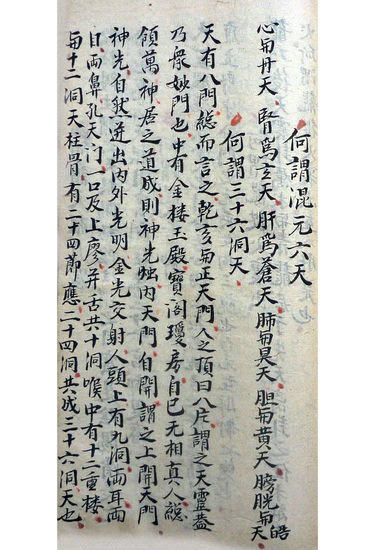 何謂混元六天
心為丹天腎爲玄天肝爲蒼天肺為昊天胆為黄天膀胱為皓天
何謂三十六洞天
天有八門總而言之乾亥為正天門人之頂曰八片謂之天靈蓋
乃衆妙門也中有金楼玉殿寶阁瓊房自已无相真人總
領萬神居之道成則神光燭内天門自開謂之上開天門
神光自然迸出内外光明金光交射人頭上有九洞兩耳兩
目兩鼻孔天门一口及上廖并舌共十洞喉中有十二重樓
為十二洞天柱骨有二十四節應二十四洞共成三十六洞天也